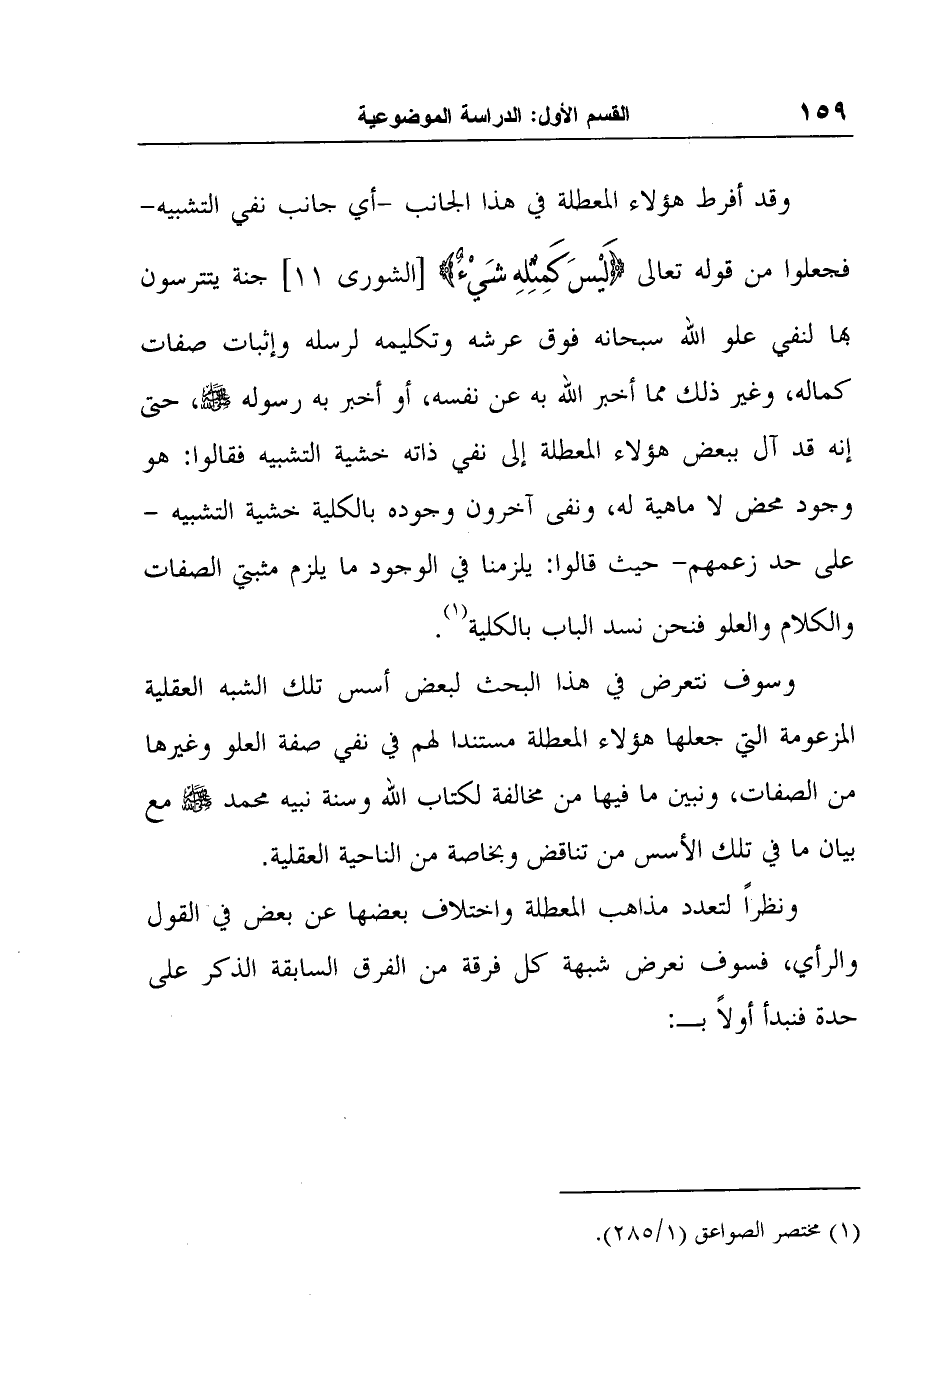 ١٥٩ القسم الأول: الدراسة الموضوعية
وقد أفرط هؤلاء المعطلة في هذا الجانب -أي جانب نفي التشبيه-
فجعلوا من قوله تعالى ﴿لَيْسَ كَمِثْلِهِ شَيْءٌ﴾ [الشورى ١١] جنة يتترسون
بها لنفي علو الله سبحانه فوق عرشه وتكليمه لرسله وإثبات صفات
كماله، وغير ذلك مما أخبر الله به عن نفسه، أو أخبر به رسوله ﷺ، حتى
إنه قد آل ببعض هؤلاء المعطلة إلى نفي ذاته خشية التشبيه فقالوا: هو
وجود محض لا ماهية له، ونفى آخرون وجوده بالكلية خشية التشبيه -
على حد زعمهم- حيث قالوا: يلزمنا في الوجود ما يلزم مثبتي الصفات
والكلام والعلو فنحن نسد الباب بالكلية(١).
وسوف نتعرض في هذا البحث لبعض أسس تلك الشبه العقلية
المزعومة التي جعلها هؤلاء المعطلة مستندا لهم في نفي صفة العلو وغيرها
من الصفات، ونبين ما فيها من مخالفة لكتاب الله وسنة نبيه محمد ﷺ مع
بيان ما في تلك الأسس من تناقض وبخاصة من الناحية العقلية.
ونظراً لتعدد مذاهب المعطلة واختلاف بعضها عن بعض في القول
والرأي، فسوف نعرض شبهة كل فرقة من الفرق السابقة الذكر على
حدة فنبدأ أولاً بــ:
(١) مختصر الصواعق (٢٨٥/١).